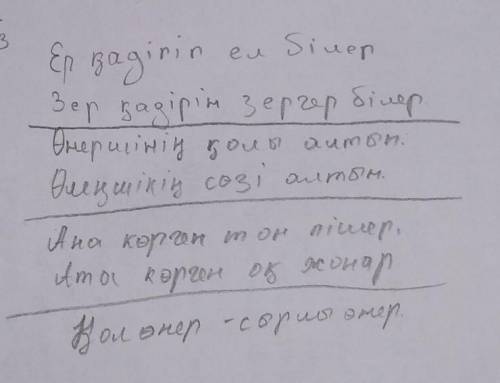 Ер қадірін ел білер
Зер қадірін зергер білер
Өнершінің қолы алтын.
Өлеңшінің сөзі алтын.
Ана көрген тон пішер,
Ата көрген оқ жонар
Қолөнер - сырлы өнер.